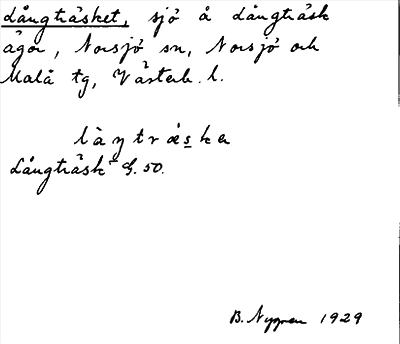 Långträsket, sjö å Långträsk
ägor, Norsjö sn, Norsjö och
Malå tg, Västerb. l.
Långträsk G. 50.
B. Nygren 1929